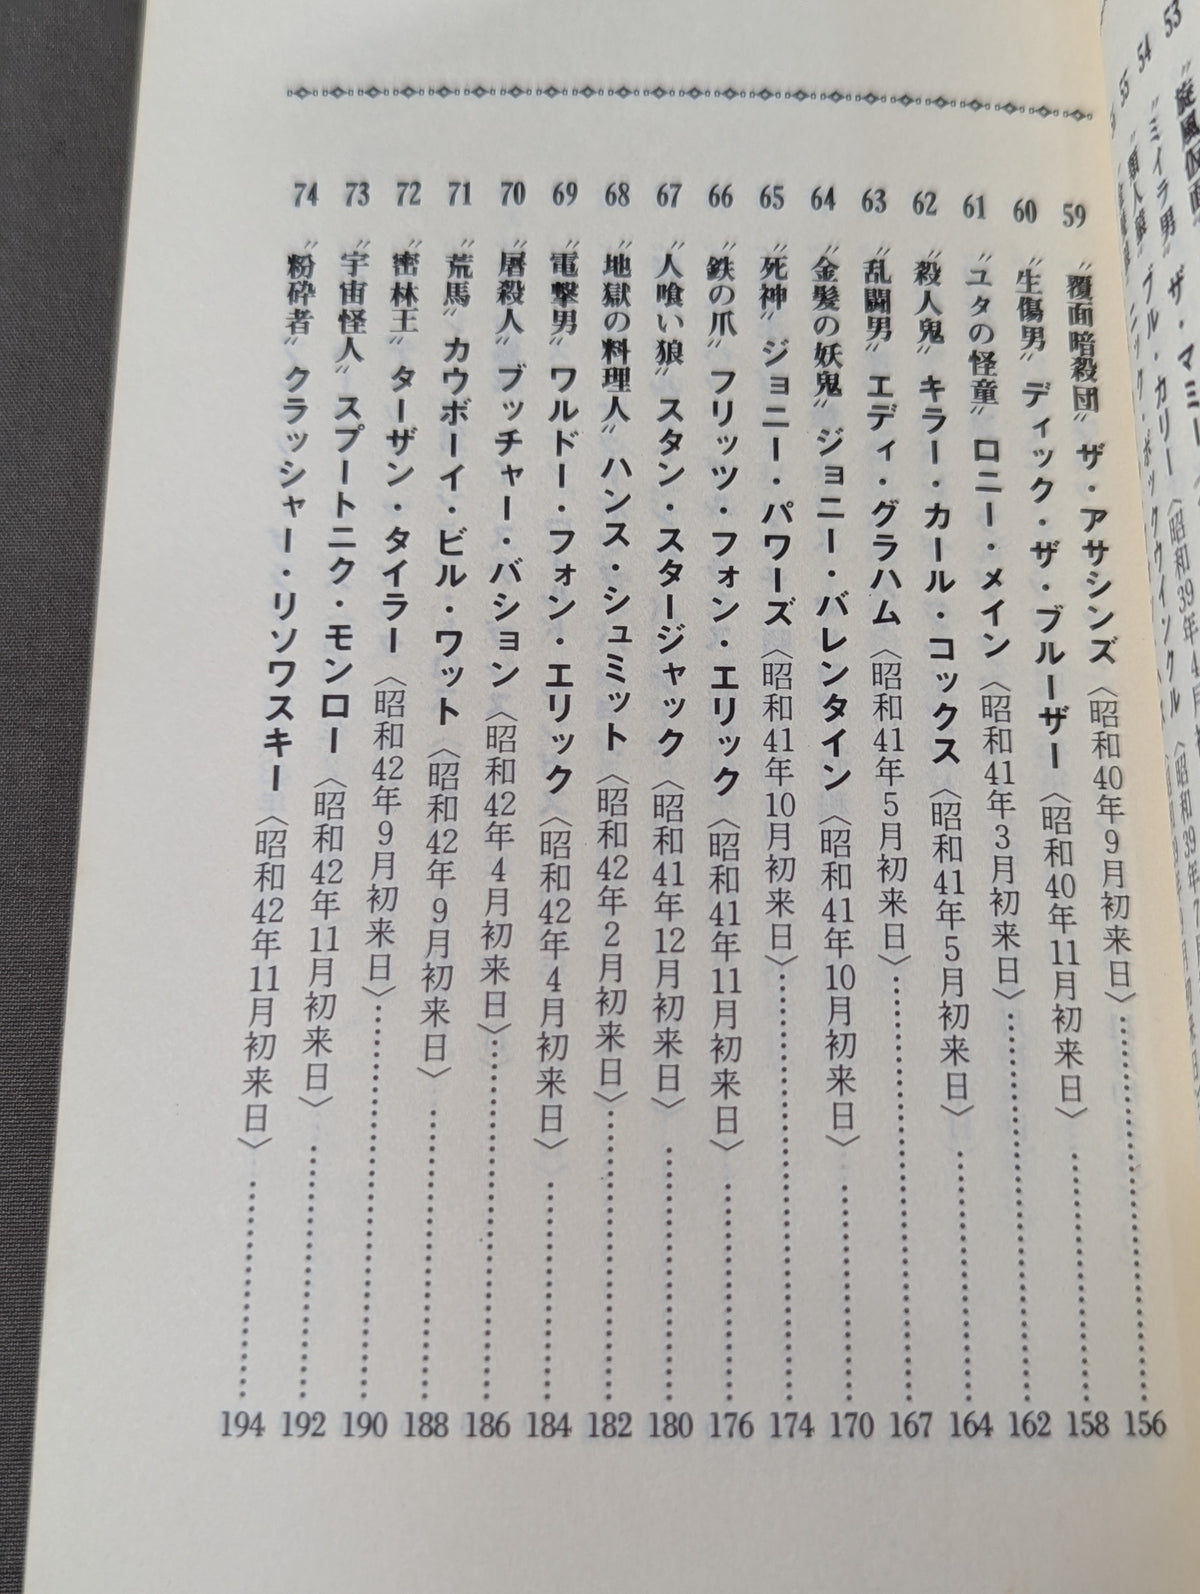 53 〝旋風仮面〟
54 〝ミイラ男〟 ザ・マミー 〈昭和39年4月
55 〝類人猿〟 ブル・カリー 〈昭和39年
ニック・ボックウインクル
59 〝覆面暗殺団〟 ザ・アサシンズ 〈昭和40年9月初来日〉 156
60 〝生傷男〟 ディック・ザ・ブルーザー 〈昭和40年11月初来日〉 158
61 〝ユタの怪童〟 ロニー・メイン 〈昭和41年3月初来日〉 162
62 〝殺人鬼〟 キラー・カール・コックス 〈昭和41年5月初来日〉 164
63 〝乱闘男〟 エディ・グラハム 〈昭和41年5月初来日〉 167
64 〝金髪の妖鬼〟 ジョニー・バレンタイン 〈昭和41年10月初来日〉 170
65 〝死神〟 ジョニー・パワーズ 〈昭和41年10月初来日〉 174
66 〝鉄の爪〟 フリッツ・フォン・エリック 〈昭和41年11月初来日〉 176
67 〝人喰い狼〟 スタン・スタージャック 〈昭和41年12月初来日〉 180
68 〝地獄の料理人〟 ハンス・シュミット 〈昭和42年2月初来日〉 182
69 〝電撃男〟 ワルドー・フォン・エリック 〈昭和42年4月初来日〉 184
70 〝屠殺人〟 ブッチャー・バション 〈昭和42年4月初来日〉 186
71 〝荒馬〟 カウボーイ・ビル・ワット 〈昭和42年9月初来日〉 188
72 〝密林王〟 ターザン・タイラー 〈昭和42年9月初来日〉 190
73 〝宇宙怪人〟 スプートニク・モンロー 〈昭和42年11月初来日〉 192
74 〝粉砕者〟 クラッシャー・リソワスキー 〈昭和42年11月初来日〉 194